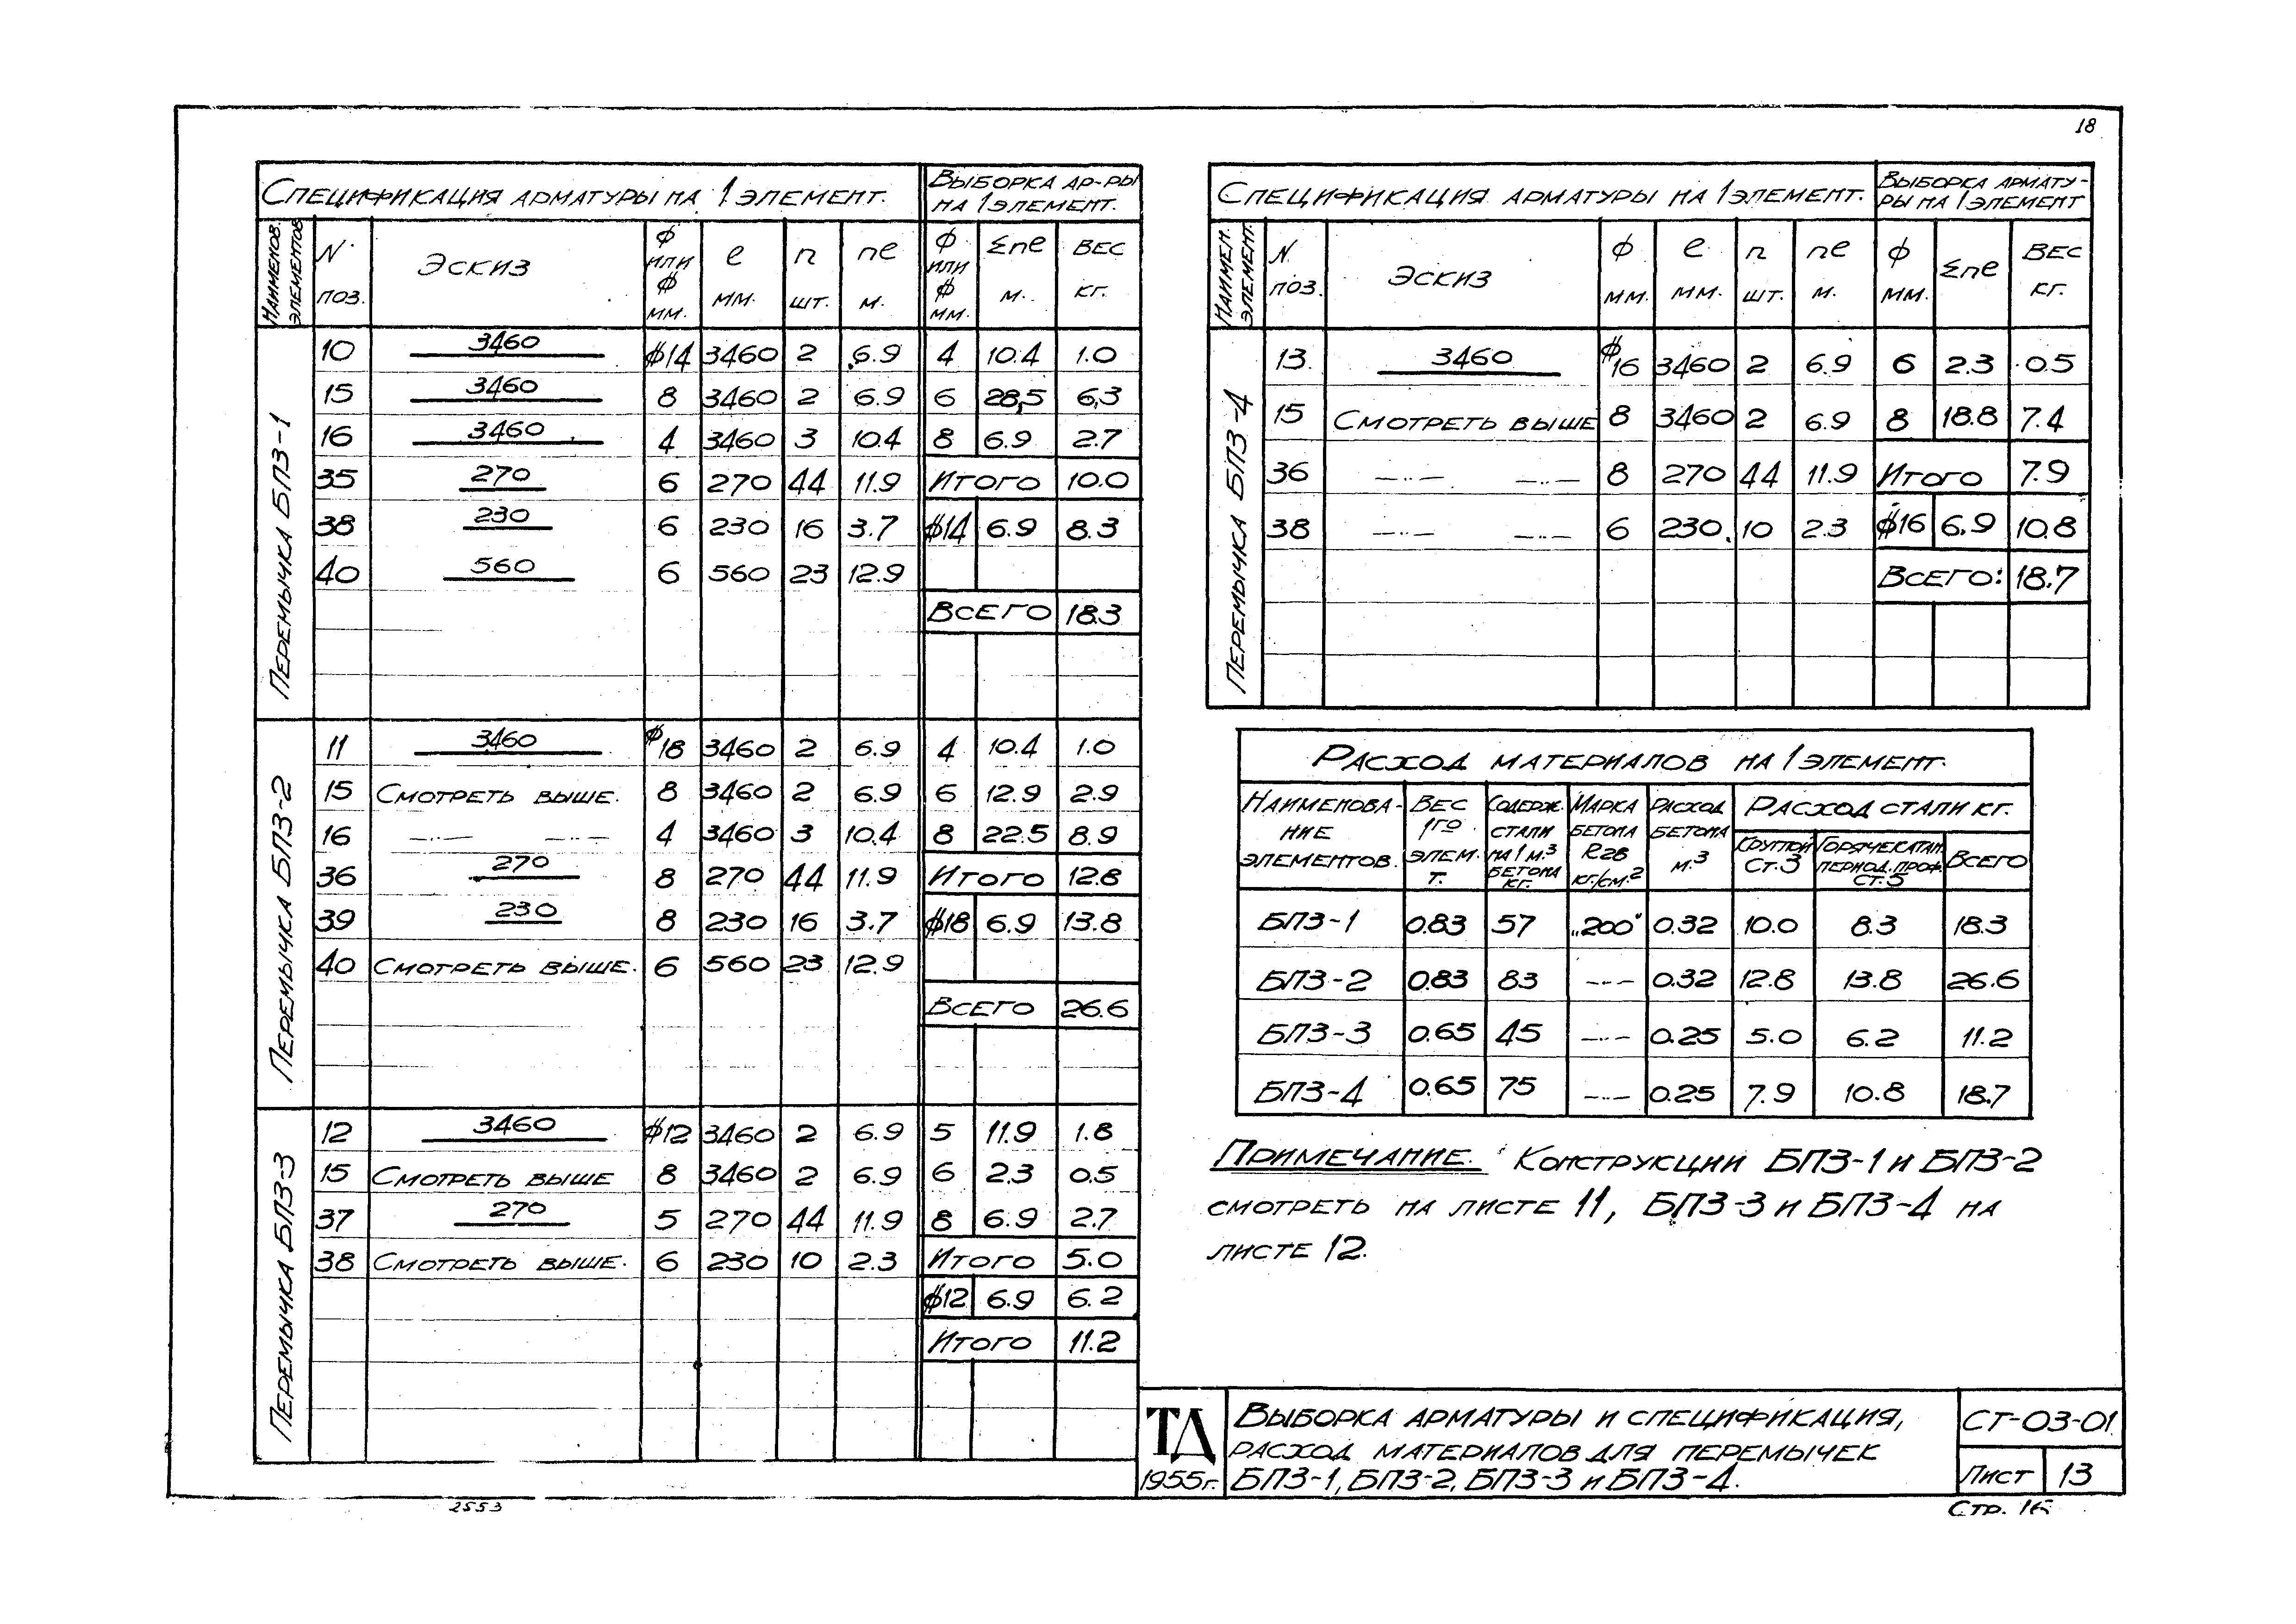 18
Спецификация арматуры на 1 элемент. Выборка ар-ры на 1 элемент.
Наименов. элементов N поз. Эскиз ф или ф мм. е мм. n шт. nе м. ф или ф мм. Σnе м. Вес кг.
Перемычка БПЗ-1
10 3460 ф14 3460 2 6.9 4 10.4 1.0
15 3460 8 3460 2 6.9 6 28,5 6,3
16 3460 4 3460 3 10.4 8 6.9 2.7
35 270 6 270 44 11.9 Итого 10.0
38 230 6 230 16 3.7 ф14 6.9 8.3
40 560 6 560 23 12.9
Всего 18.3
Перемычка БПЗ-2
11 3460 ф18 3460 2 6.9 4 10.4 1.0
15 Смотреть выше. 8 3460 2 6.9 6 12.9 2.9
16 —··— —··— 4 3460 3 10.4 8 22.5 8.9
36 270 8 270 44 11.9 Итого 12.8
39 230 8 230 16 3.7 ф18 6.9 13.8
40 Смотреть выше. 6 560 23 12.9
Всего 26.6
Перемычка БПЗ-3
12 3460 ф12 3460 2 6.9 5 11.9 1.8
15 Смотреть выше 8 3460 2 6.9 6 2.3 0.5
37 270 5 270 44 11.9 8 6.9 2.7
38 Смотреть выше. 6 230 10 2.3 Итого 5.0
ф12 6.9 6.2
Итого 11.2
Спецификация арматуры на 1 элемент. Выборка армату-ры на 1 элемент
Наимен. элемент. N. поз. Эскиз ф мм. е мм. n шт. nе м. ф мм. Σnе Вес кг.
Перемычка БПЗ-4
13. 3460 ф16 3460 2 6.9 6 2.3 0.5
15 Смотреть выше 8 3460 2 6.9 8 18.8 7.4
36 —··— —··— 8 270 44 11.9 Итого 7.9
38 —··— —··— 6 230. 10 2.3 ф16 6.9 10.8
Всего: 18.7
Расход материалов на 1 элемент.
Наименова-ние элементов. Вес 1го элем. т. Содерж. стали на 1 м.³ бетона кг. Марка бетона R28 кг/см.² Расход бетона м.³ Расход стали кг.
Круглой ст.3 Горячекатан. период. проф. ст.5 Всего
БПЗ-1 0.83 57 „200" 0.32 10.0 8.3 18.3
БПЗ-2 0.83 83 —·— 0.32 12.8 13.8 26.6
БПЗ-3 0.65 45 —·— 0.25 5.0 6.2 11.2
БПЗ-4 0.65 75 —·— 0.25 7.9 10.8 18.7
Примечание. Конструкции БПЗ-1 и БПЗ-2
смотреть на листе 11, БПЗ-3 и БПЗ-4 на
листе 12.
ТД
1955г.
Выборка арматуры и спецификация,
расход материалов для перемычек
БПЗ-1, БПЗ-2, БПЗ-3 и БПЗ-4.
СТ-03-01
Лист 13
2553
Стр. 16